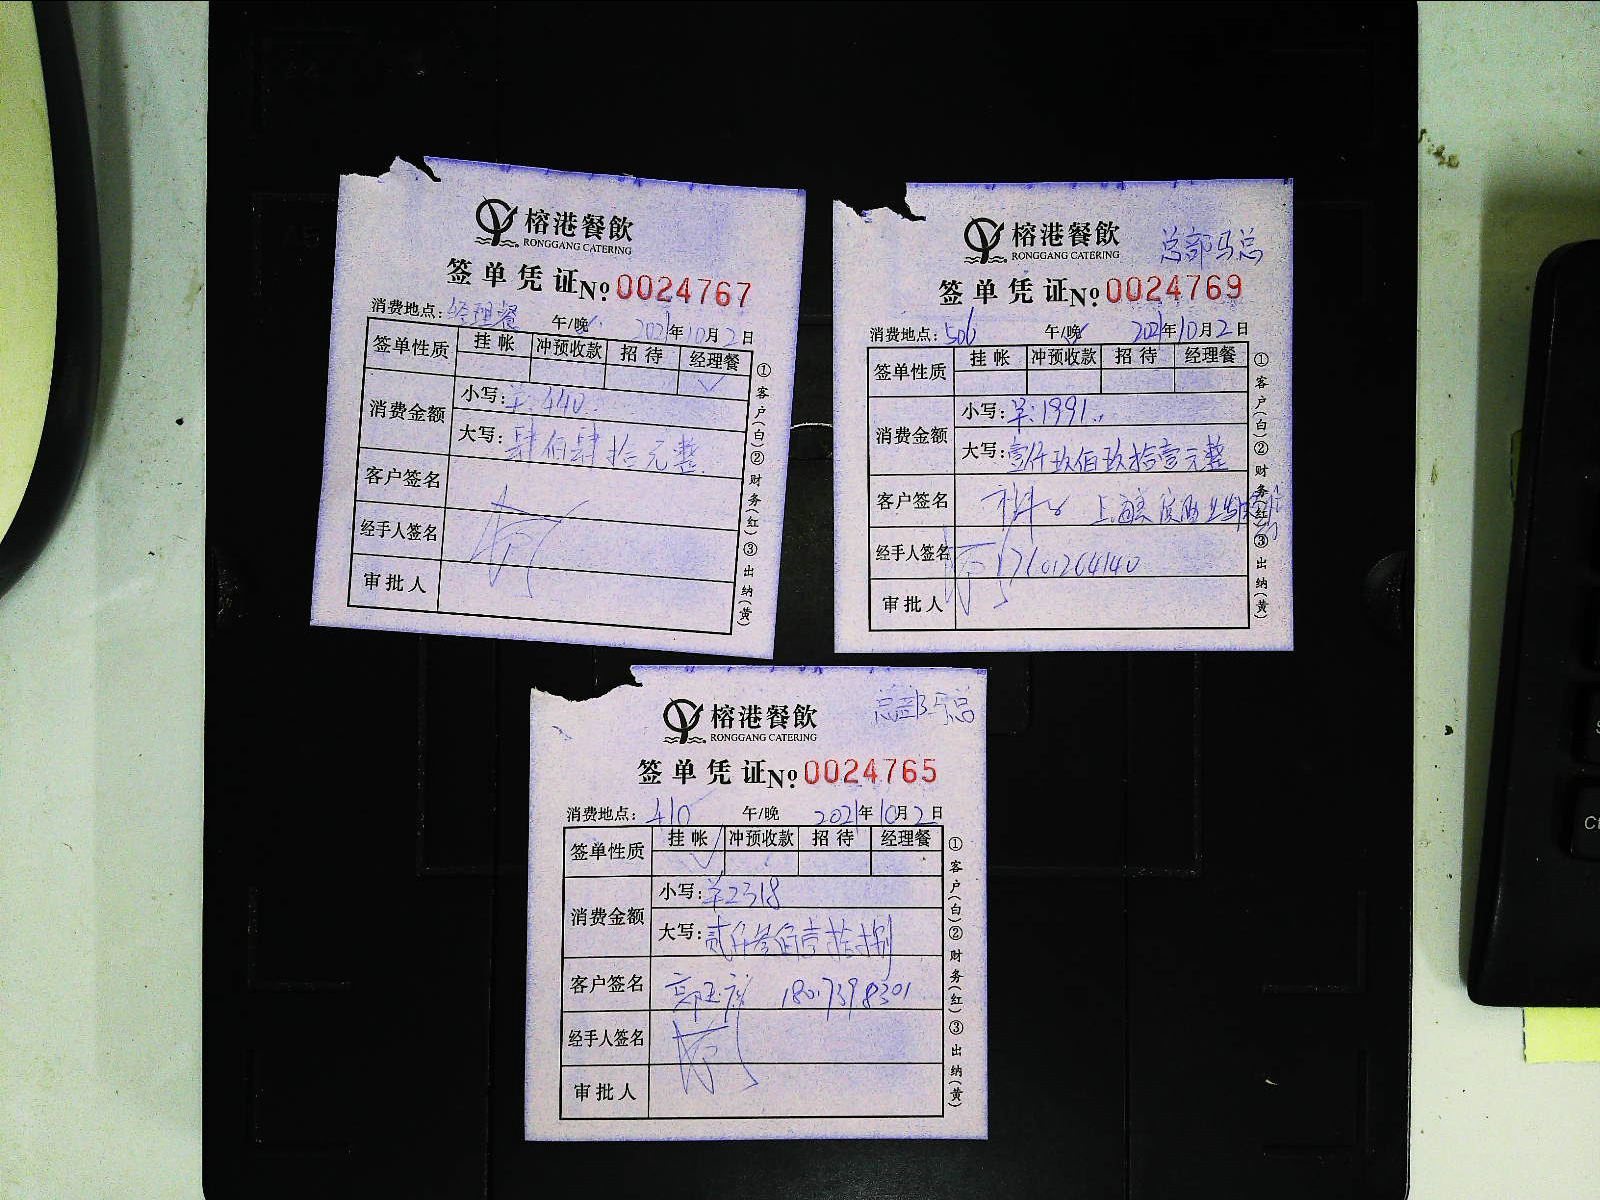 榕港餐飲
RONGGANG CATERING
签单凭证№ 0024767
消费地点：经理餐 午/晚 2021年10月2日
签单性质 挂帐 冲预收款 招待 经理餐
消费金额 小写：¥:440.
大写：肆佰肆拾元整
客户签名
经手人签名
审批人
①客户(白)②财务(红)③出纳(黄)
榕港餐飲
RONGGANG CATERING
总部冯总
签单凭证№ 0024769
消费地点：506 午/晚 2021年10月2日
签单性质 挂帐 冲预收款 招待 经理餐
消费金额 小写：¥:1991.
大写：壹仟玖佰玖拾壹元整
客户签名 上海
经手人签名 17601264140
审批人
①客户(白)②财务(红)③出纳(黄)
榕港餐飲
RONGGANG CATERING
总部冯总
签单凭证№ 0024765
消费地点：410 午/晚 2021年10月2日
签单性质 挂帐 冲预收款 招待 经理餐
消费金额 小写：¥2318
大写：贰仟叁佰壹拾捌
客户签名 18017398301
经手人签名
审批人
①客户(白)②财务(红)③出纳(黄)